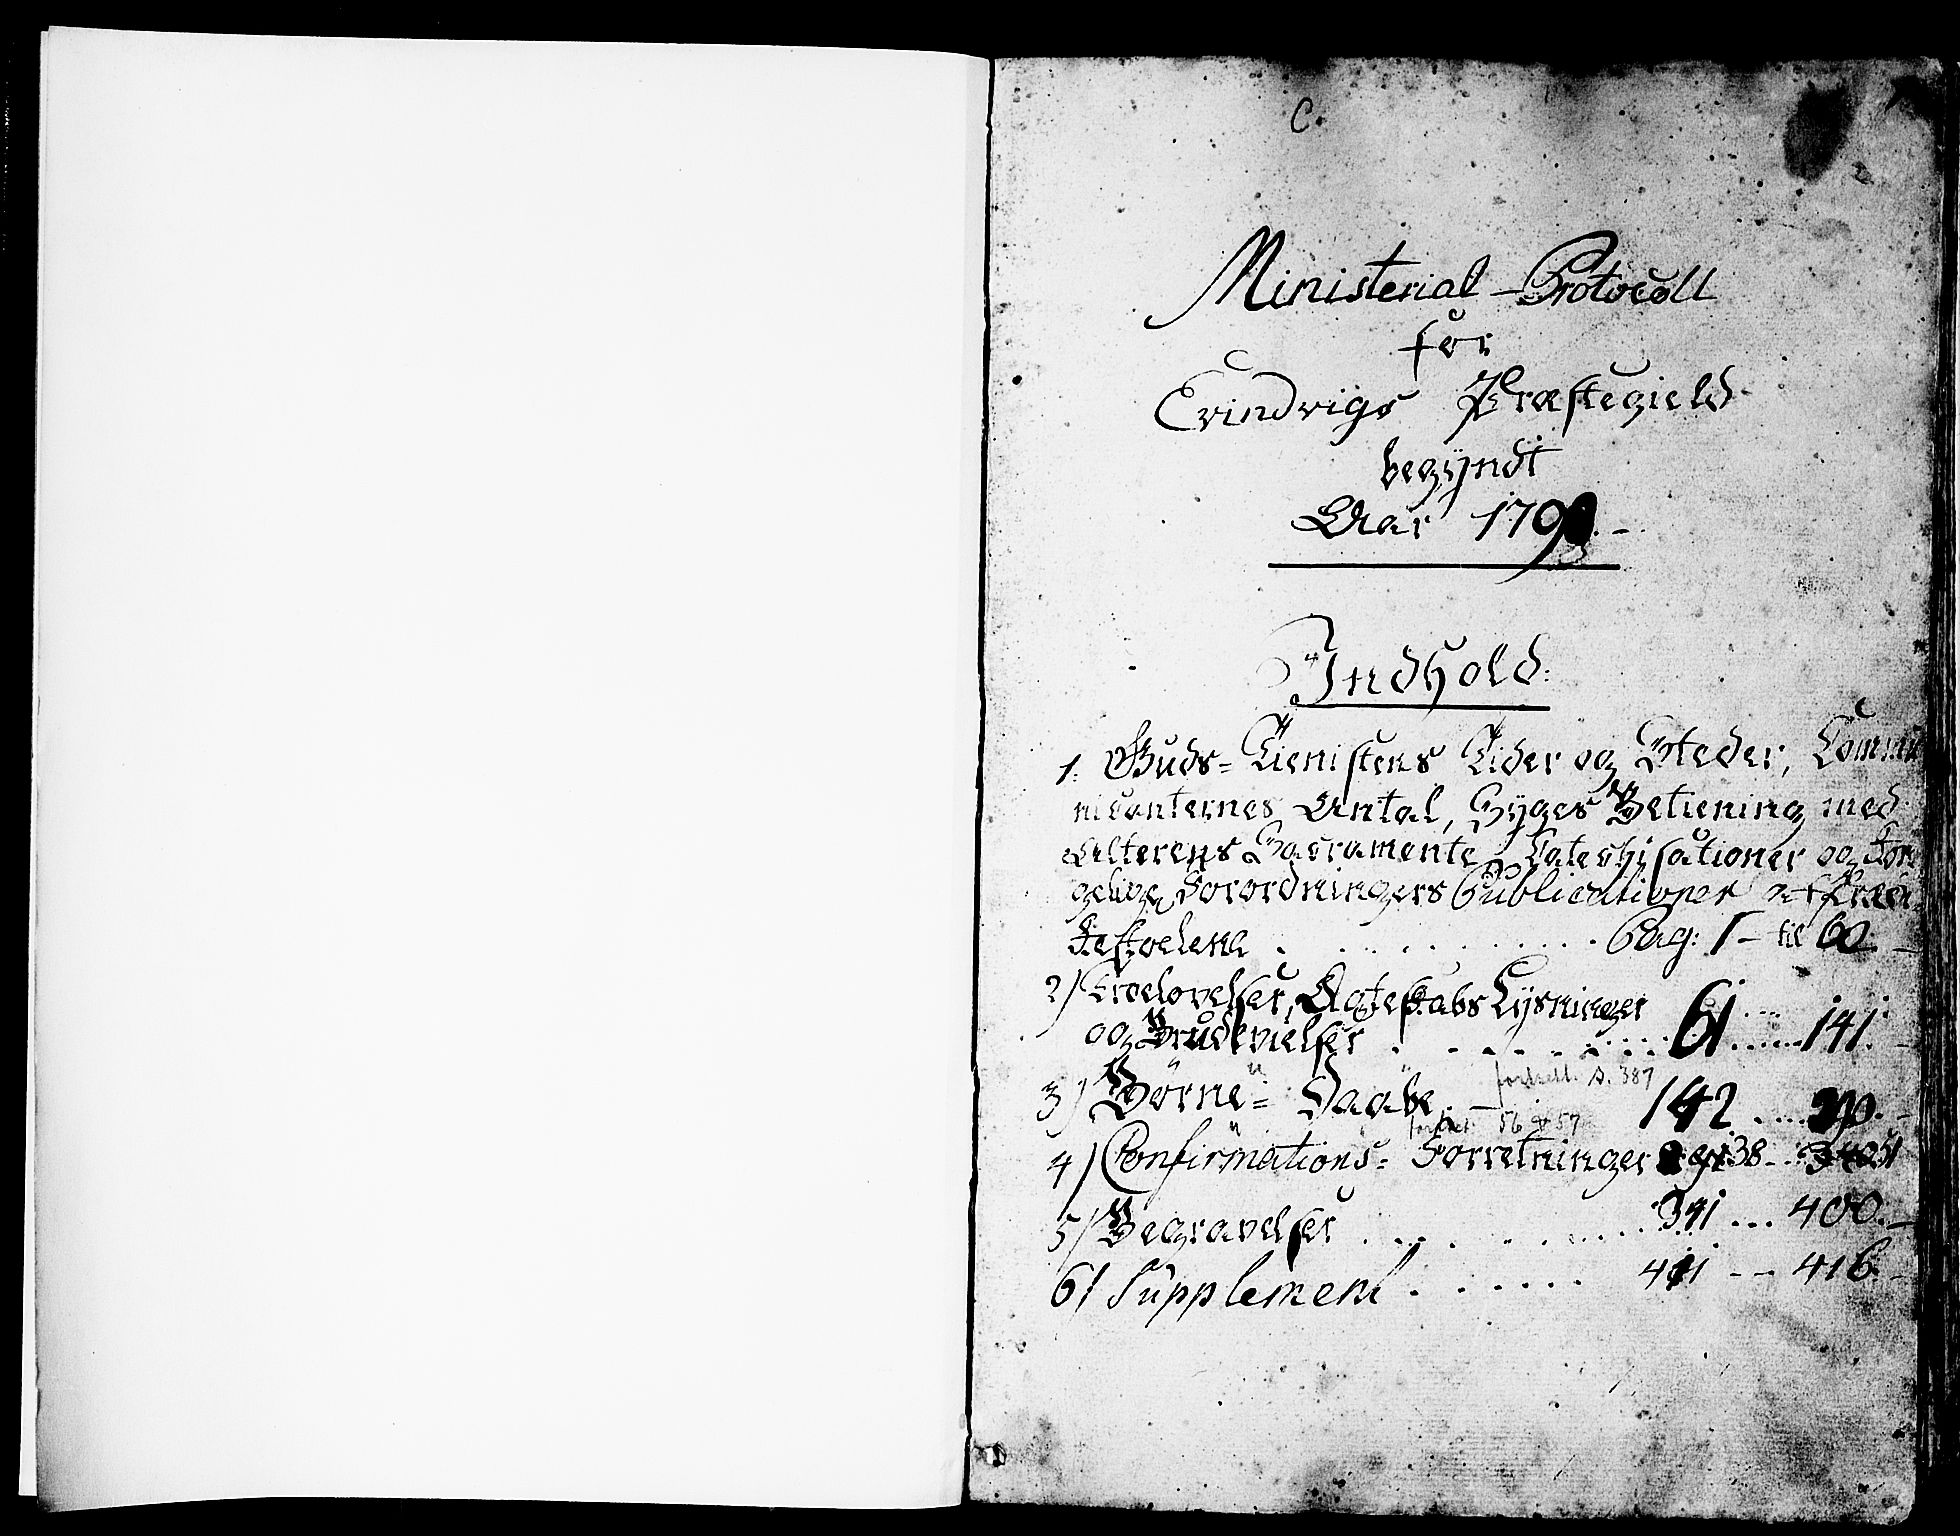 C.
Ministerial-Protocoll
for
Evindvigs Præstegield
begÿndt
Aar 179
Indhold:
1. Guds-Tienistens Tider og Steder, Commu
nicanternes Antal, Syges Betiening med
Alterens Sacramente, Catechisationer og Kon
gelige Forordningers Publicationer af Præ
kestoelene . . . . . . Pag: 1 - til 60
2) Troelovelser, Ægteskabs Lysninger
og Brudevielser . . . . . . 61 ..... 141.
fortsett. s. 387
3) Börne= Daab . - 142 .....
fortset. 56 & 57
4) Confirmations= Forretninger 38
5) Begravelser . . . . . . 341 ... 400.
6) Supplement . . . . . . 401 -- 416.